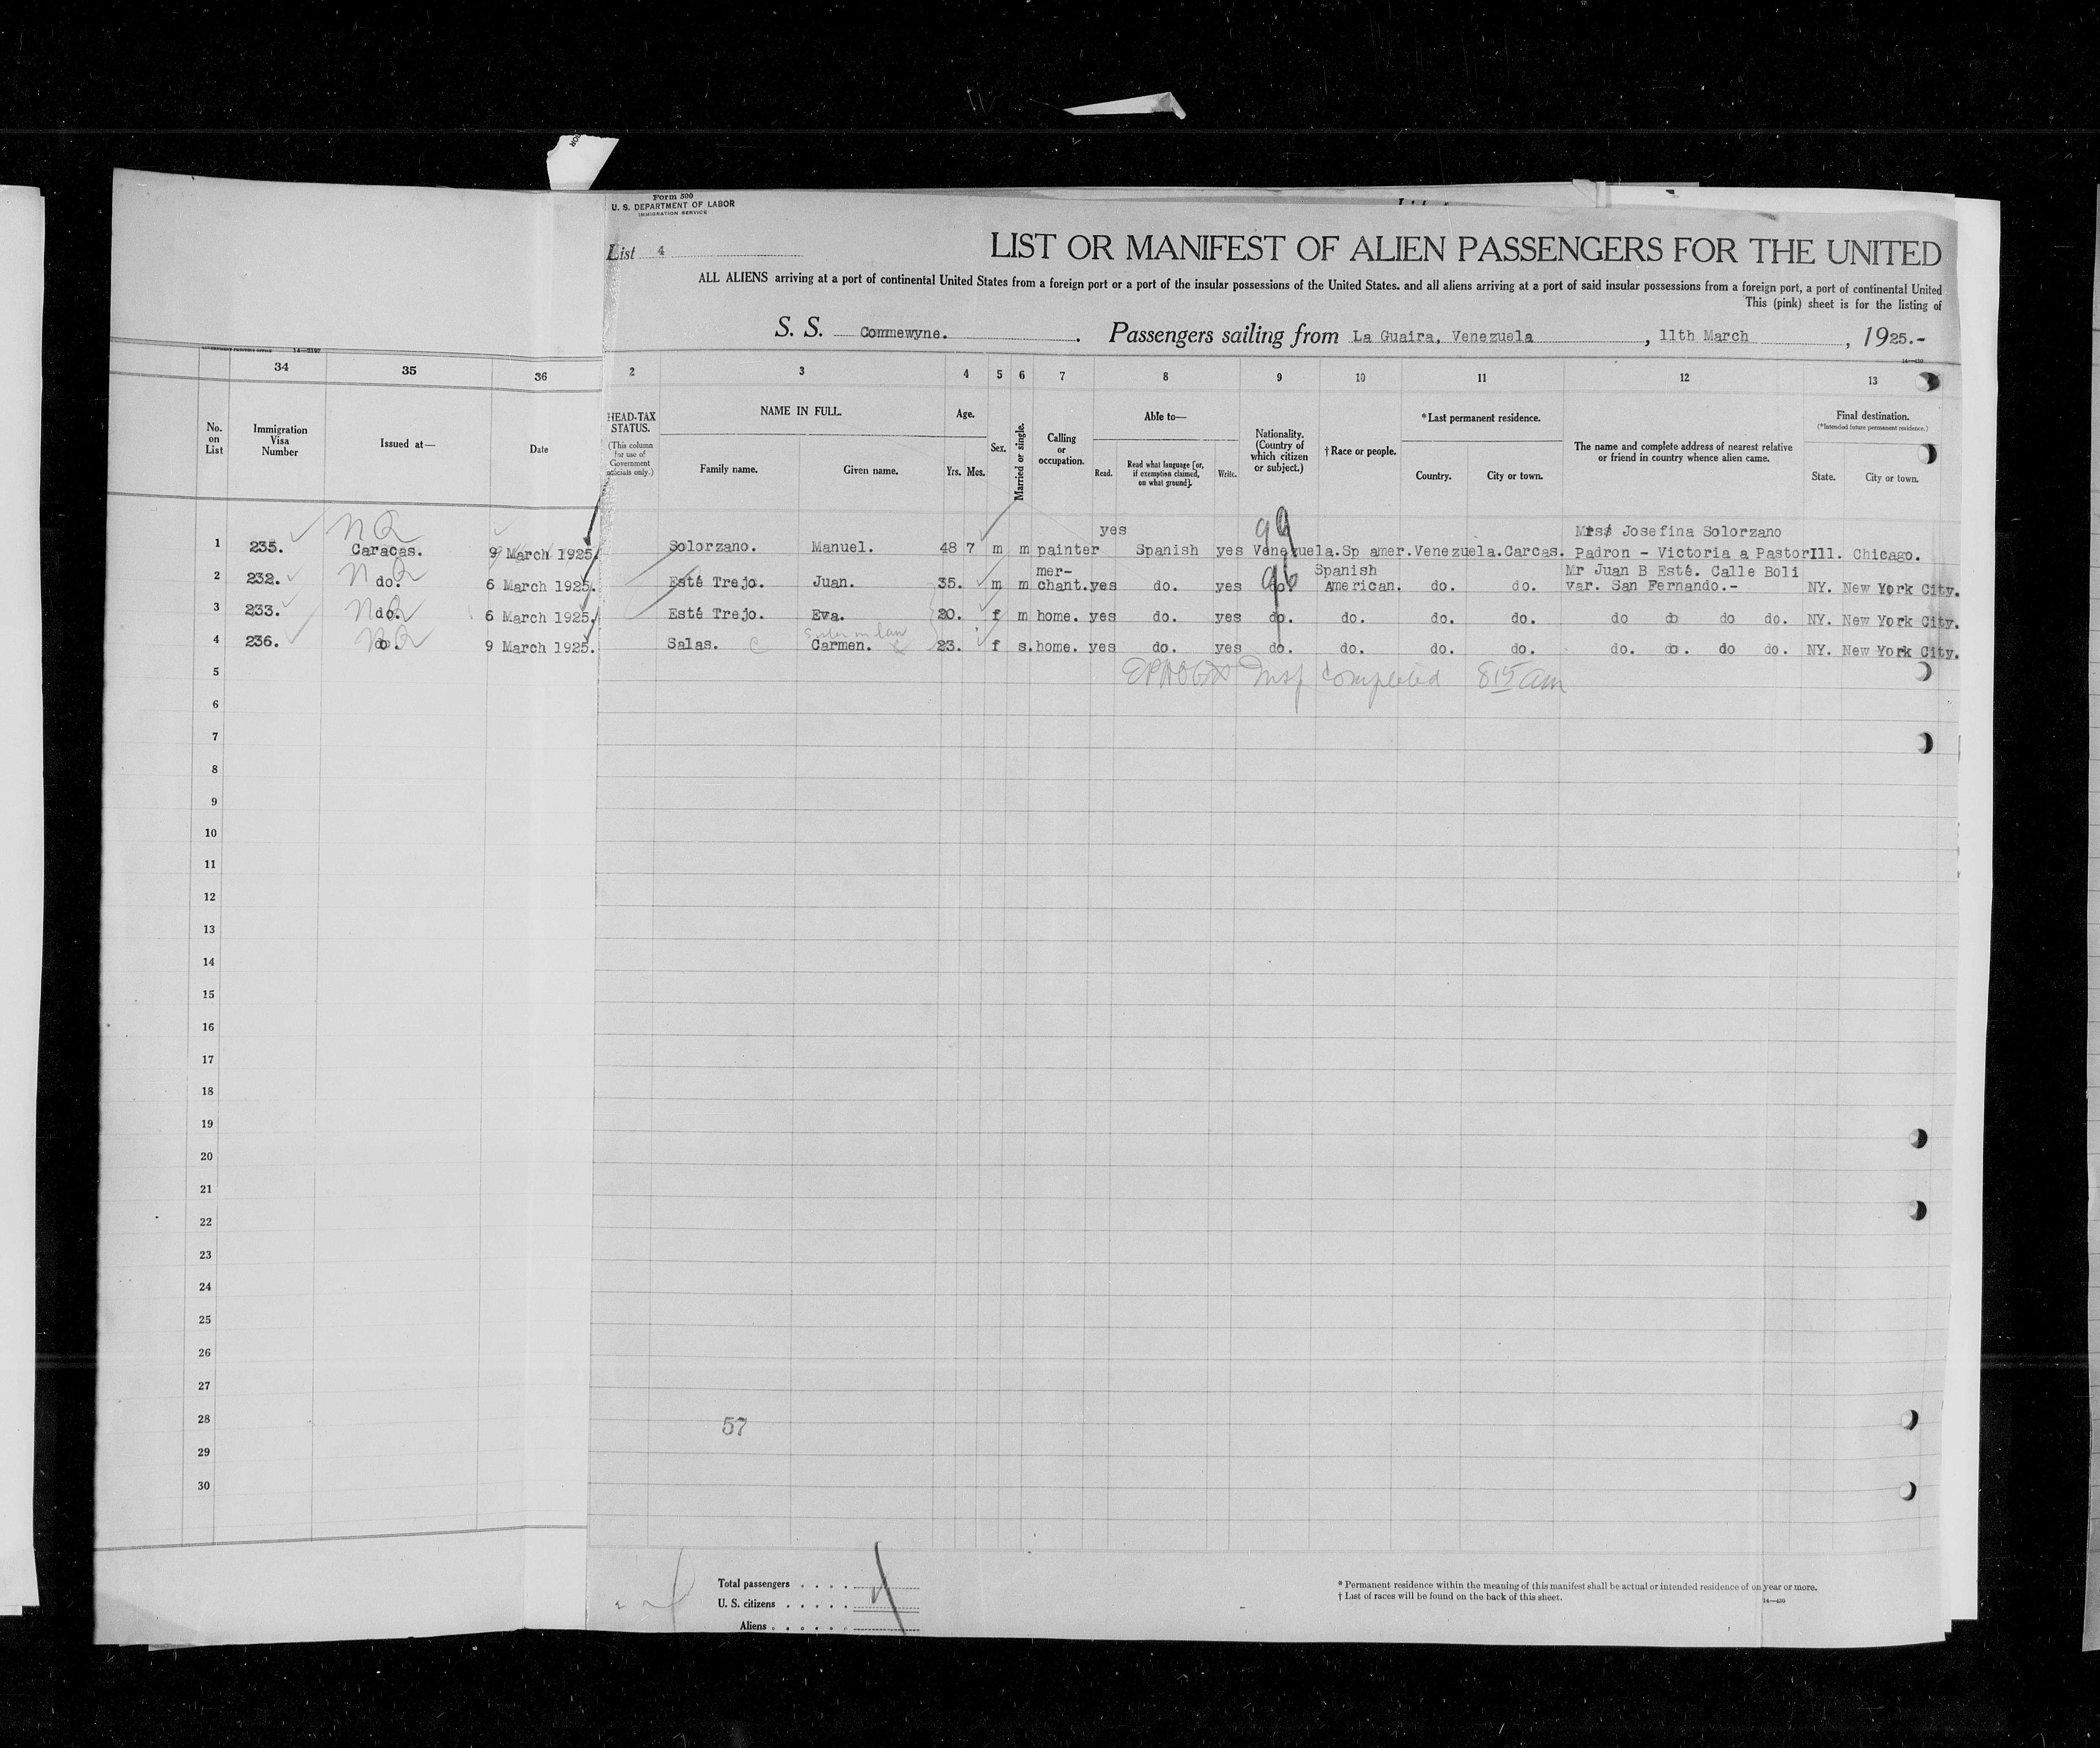 Form 500
U. S. DEPARTMENT OF LABOR
IMMIGRATION SERVICE
List 4
LIST OR MANIFEST OF ALIEN PASSENGERS FOR THE UNITED
ALL ALIENS arriving at a port of continental United States from a foreign port or a port of the insular possessions of the United States. and all aliens arriving at a port of said insular possessions from a foreign port, a port of continental United
This (pink) sheet is for the listing of
S. S. Commewyne. Passengers sailing from La Guaira, Venezuela , 11th March , 1925.-
34 35 36 2 3 4 5 6 7 8 9 10 11 12 13
No. on List
Immigration Visa Number
Issued at—
Date
HEAD-TAX STATUS.
(This column for use of Government officials only.)
NAME IN FULL.
Family name. Given name.
Age.
Yrs. Mos.
Sex.
Married or single.
Calling or occupation.
Able to—
Read. Read what language [or, if exemption claimed, on what ground]. Write.
Nationality. (Country of which citizen or subject.)
†Race or people.
*Last permanent residence.
Country. City or town.
The name and complete address of nearest relative or friend in country whence alien came.
Final destination.
(*Intended future permanent residence.)
State. City or town.
yes Mrss Josefina Solorzano
1 235. Caracas. 9 March 1925. Solorzano. Manuel. 48 7 m m painter Spanish yes Venezuela. Sp amer. Venezuela. Carcas. Padron - Victoria a Pastor Ill. Chicago.
mer- Spanish Mr Juan B Esté. Calle Boli
2 232. do. 6 March 1925. Esté Trejo. Juan. 35. m m chant. yes do. yes do. American. do. do. var. San Fernando.- NY. New York City.
3 233. do. 6 March 1925. Esté Trejo. Eva. 20. f m home. yes do. yes do. do. do. do. do do do do. NY. New York City.
sister in law
4 236. do. 9 March 1925. Salas. C Carmen. 23. f s. home. yes do. yes do. do. do. do. do. do. do do. NY. New York City.
5 Insp completed 8 15 am
6
7
8
9
10
11
12
13
14
15
16
17
18
19
20
21
22
23
24
25
26
27
28 57
29
30
Total passengers . . . .
U. S. citizens . . . . .
Aliens . . . . . .
* Permanent residence within the meaning of this manifest shall be actual or intended residence of on year or more.
† List of races will be found on the back of this sheet.
14—430